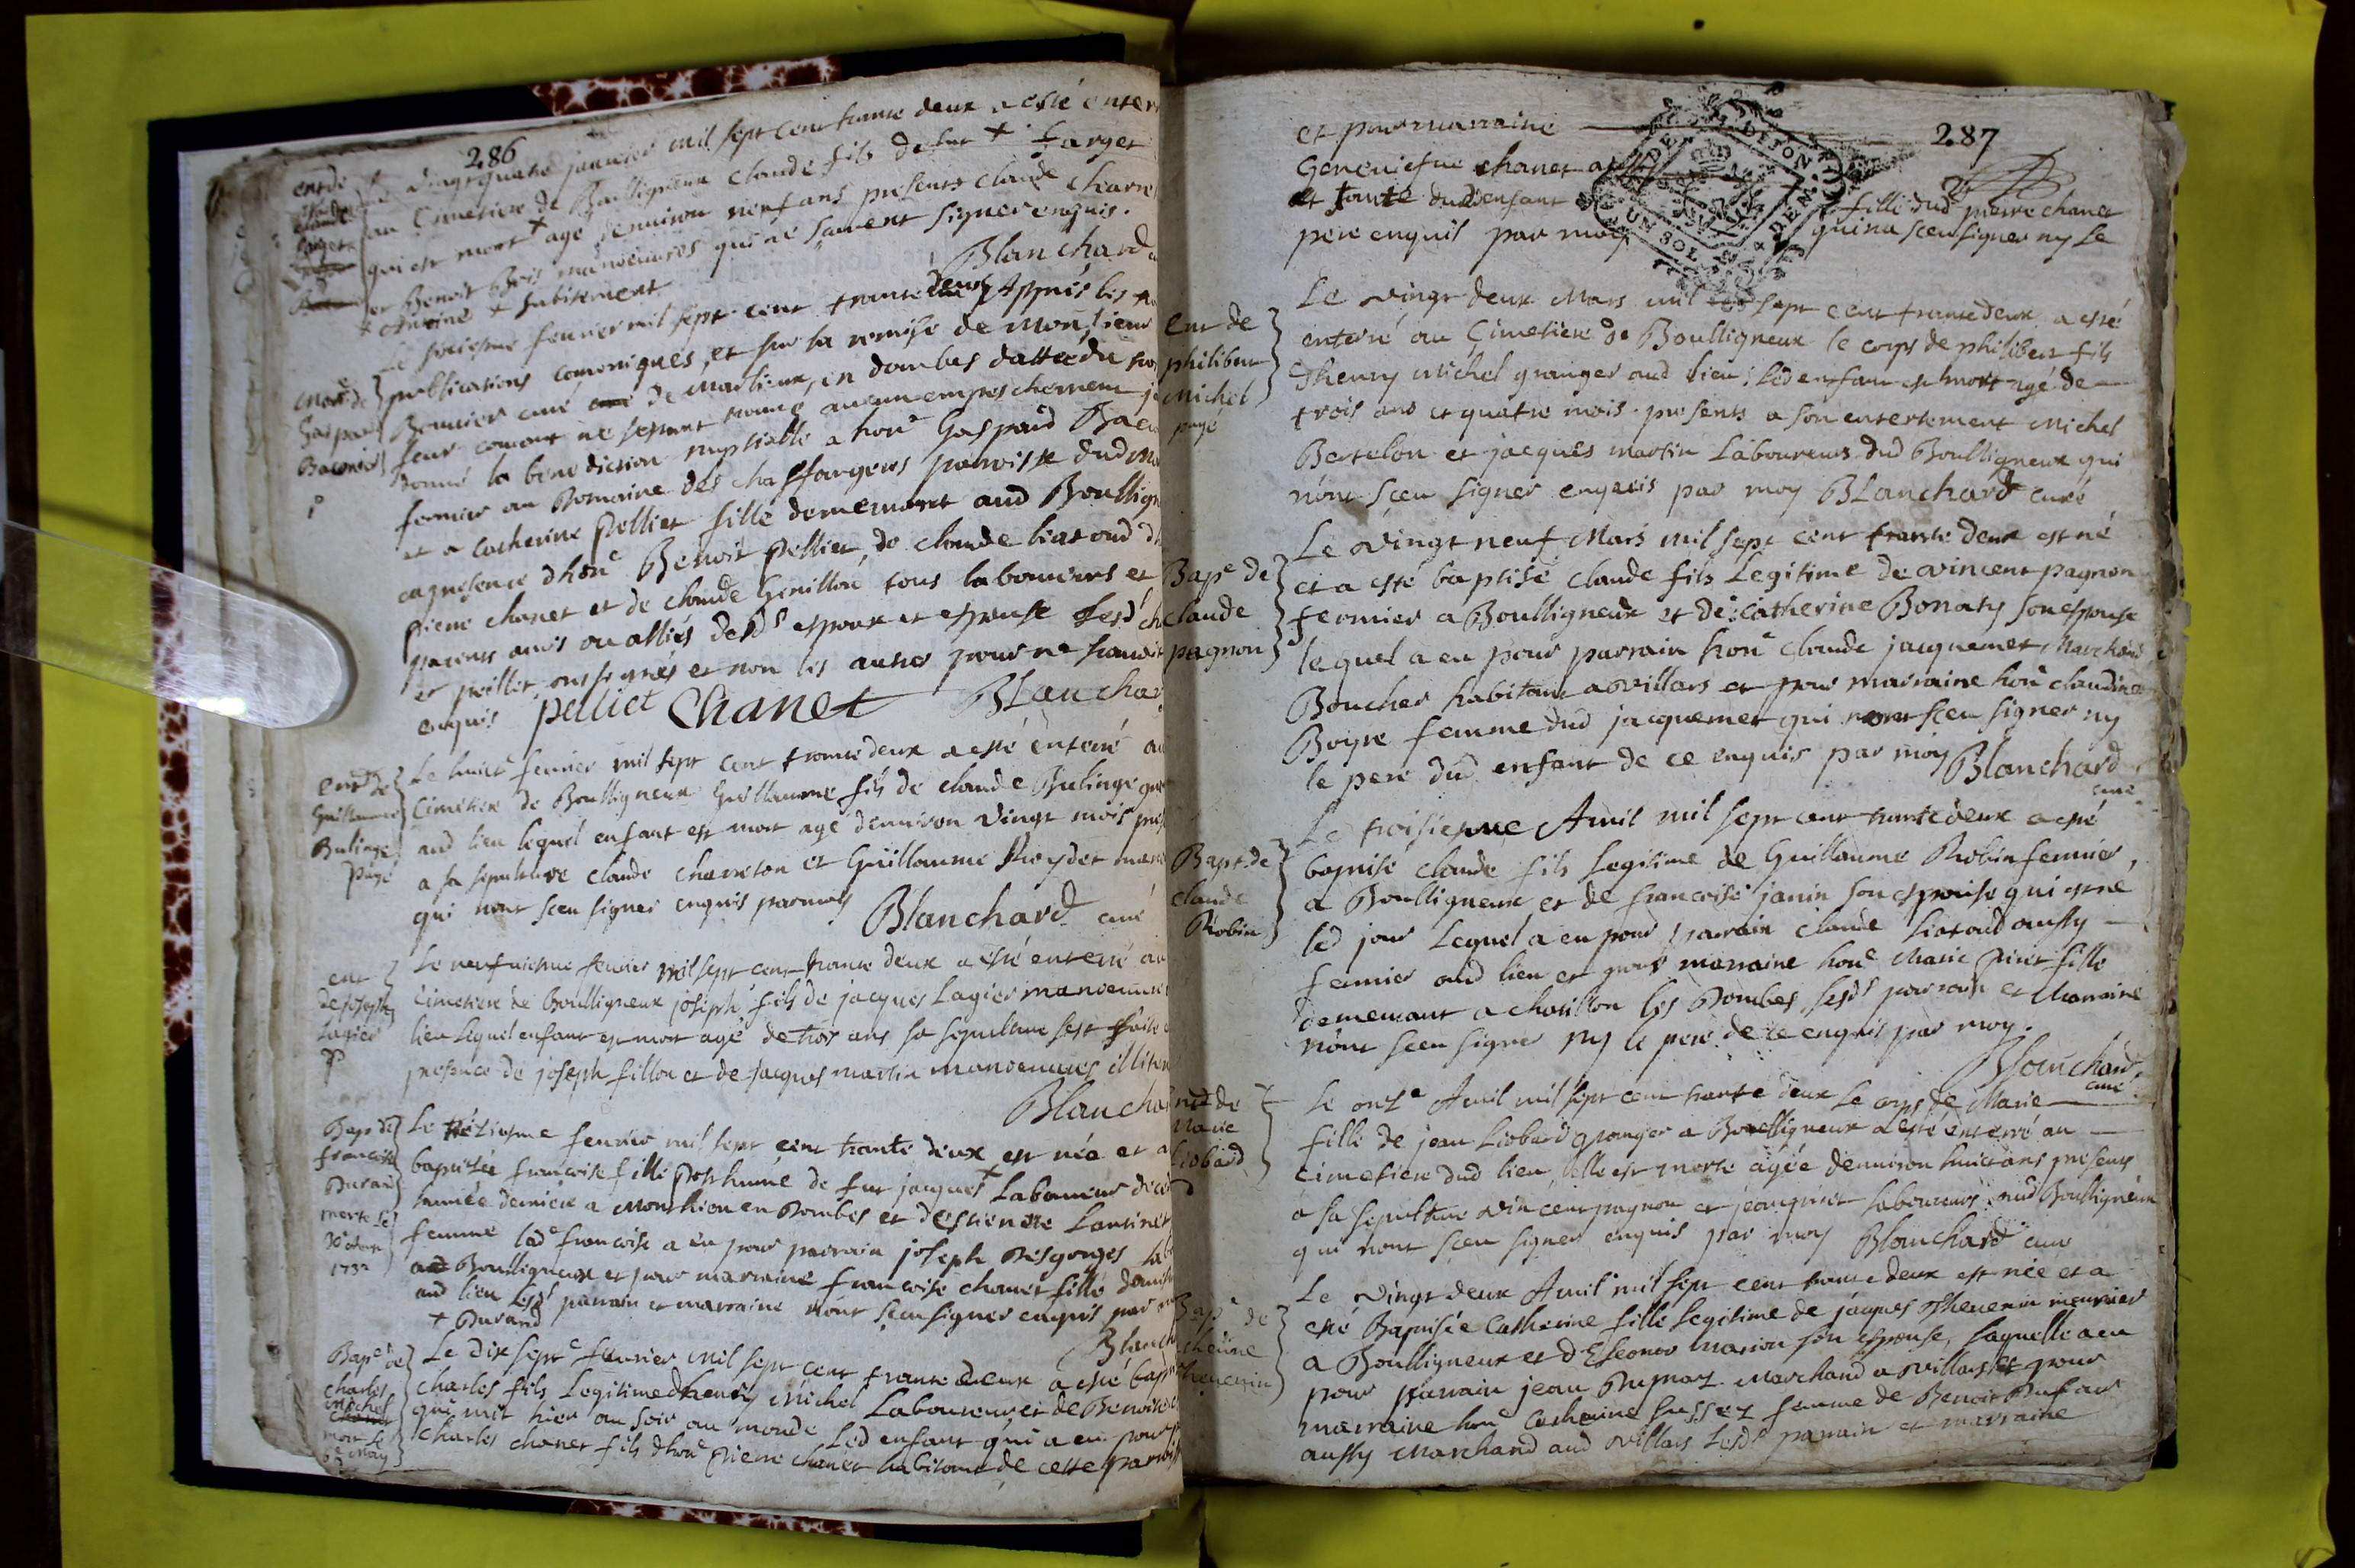 286
entde
claude
farget
Vingtquatre janvier mil sept cent trante deux a esté enter
au Cimetiere de Boulligneux Claude fils de fut + farget
qui est mort + agé denviron neuf ans presents claude Charre
et Benoit Bois manoeuvres qui ne savent signer enquis.
+ Antoine + subitement
Blanchard
mar de
Gaspard
Baconier
Le sixiesme fevrier mil sept cent trante deux Appres les
publications canoniques, et sur la remise de Monsieur
Bennier curé de Marlieux, en dombes dattée du
jour courant ne sepent trouvé aucun empeschement
donné la benediction nuptialle a hone Gaspard Baco
fermier au Domaine des chaffangeus parroisse dud
et a Catherine pelliet fille demeurant aud Boullign
en presence dhone Benoit pelliet, de claude liatoud
pierre chanet et de claude Genillon tous laboureurs et
parens amis ou alliés desds espoux et espouse lesd ch
et pelliet ont signés et non les autres pour ne savoir
enquis pelliet Chanet Blanchar
ent de
Guillaume
Bulinge
payé
Le huict fevrier mil sept cent trante deux a esté enterré au
Cimetiere de Boulligneux Guillaume fils de claude Bulinge
aud lieu lequel enfant est mort agé denviron vingt mois
a sa sepulture claude charreton et Guillaume Roydet
qui nont sceu signer enquis par moy
Blanchard curé
ent
de joseph
Lagier
Le neufviesme fevrier mil sept cent trante deux a esté enterré au
Cimetiere de Boulligneux joseph fils de jacques Lagier manoeuvre
lieu lequel enfant est mort agé de trois ans sa sepulture sest faite
presence de joseph fillon et de jacques martin manoeuvres illiter
Blancha
Bap de
francoise
Durand
morte le
1732
Le treiziesme fevrier mil sept cent trante deux est née et a
baptisée francoise fille posthume de fut jacques + Laboureur
lannée derniere a Monthieu en Dombes et destiennette Lantinet
femme lade francoise a eu pour parrain joseph Desgorges
a Boulligneux et pour marraine francoise chanet fille
aud lieu lesds parrain et marraine nont sceu signer enquis par
+ Durand
Blanch
Bape de
charles
michel
mort le
may
Le dix septe fevrier mil sept cent trante deux a esté bapt
charles fils Legitime dhenry Michel Laboureur et de Benoite
qui mit hier au soir au monde Led enfant qui a eu pour
Charles chanet fils dhone pierre chanet habitant de cette parroiss
287
et pour marraine
Geneviefve chanet
et tante dud enfant fille dud pierre chanet
pere enquis par moy qui na sceu signer ny le
DIJON
UN SOL
ent de
philibert
michel
payé
Le vingt deux Mars mil sept cent trante deux a esté
enterré au Cimetiere de Boulligneux le corps de philibert fils
dhenry Michel granger aud lieu; led enfant est mort agé de
trois ans et quatre mois. presents a son enterrement michel
Bertelon et jacques martin Laboureurs dud Boulligneux qui
nont sceu signer enquis par moy Blanchard curé
Bape de
claude
pagnon
Le vingt neuf Mars mil sept cent trante deux est né
et a esté baptisé claude fils Legitime de vincent pagnon
fermier a Boulligneux et de catherine Bonaty son espouse
lequel a eu pour parrain hone claude jacquemet, Marchand
Boucher habitant a villars et pour marraine hone claudine
Boyse femme dud jacquemet qui nont sceu signer ny
le pere dud enfant de ce enquis par moy Blanchard
curé
Bapt de
claude
Robin
Le troisiesme Avril mil sept cent trante deux a esté
baptisé claude fils Legitime de Guillaume Robin fermier
a Boulligneux et de francoise janin son espouse qui est né
led jour Lequel a eu pour parrain claude Liatoud aussy
fermier aud lieu et pour marraine hone Marie piret fille
demeurant a chatillon les Dombes, lesds parrain et Marraine
nont sceu signer ny le pere de ce enquis par moy.
Blanchard
curé
ent de
Marie
Liobard
Le onze Avril mil sept cent trante deux Le corps de Marie
fille de jean Liobard granger a Boulligneux a esté enterré au
cimetiere dud lieu, elle est morte agée denviron huict ans presents
a sa sepulture vincent pagnon et laboureurs aud Boulligneux
qui nont sceu signer enquis par moy Blanchard curé
Bape de
therine
thevenin
Le vingt deux Avril mil sept cent trante deux est née et a
esté Baptisée Catherine fille Legitime de jacques Thevenin meunier
a Boulligneux et dEleonor Marion son espouse, laquelle a eu
pour parrain jean Marchand a villars et pour
marraine hone Catherine femme de Benoit Dufour
aussy Marchand aud villars lesds parrain et marraine